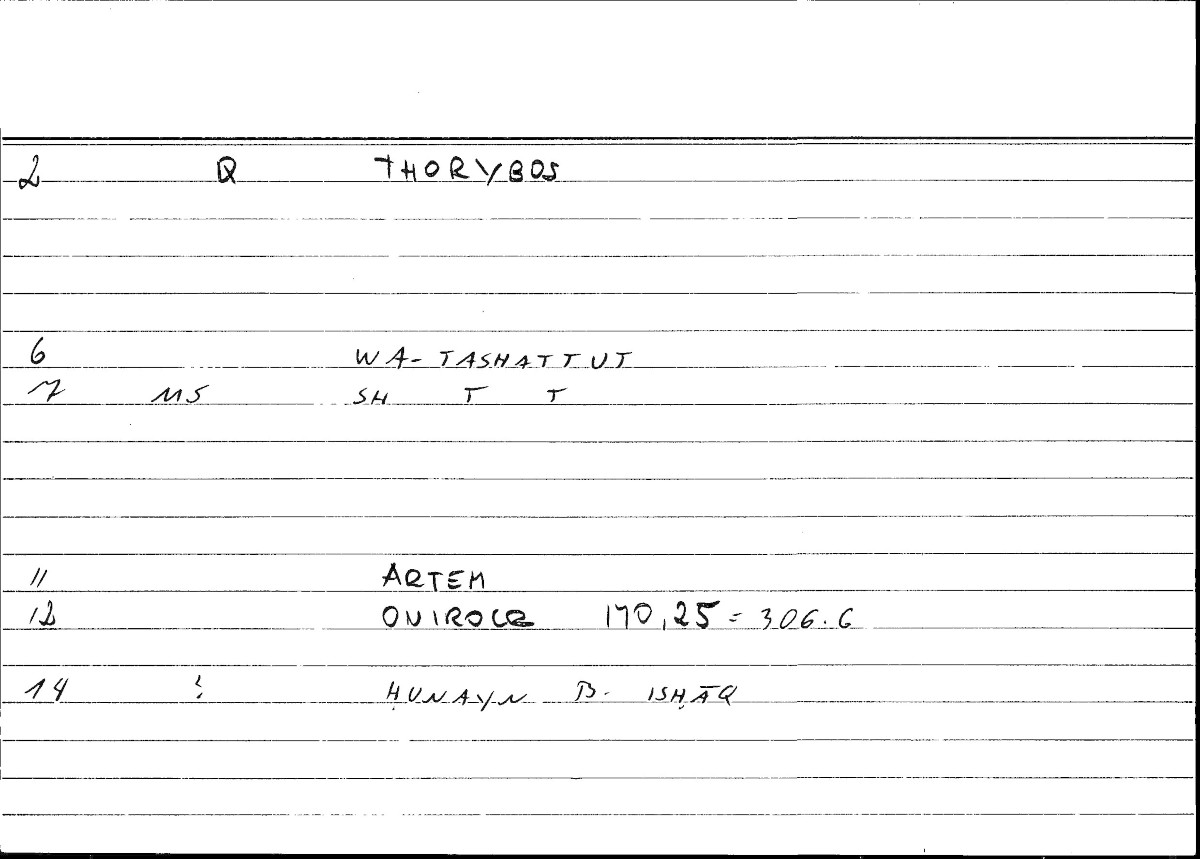 2 Q THORYBOS
6 WA- TASHATTUT
7 MS SH T T
11 ARTEM
12 ONIROCR 170,25 = 306.6
14 ḤUNAYN B. ISḤĀQ